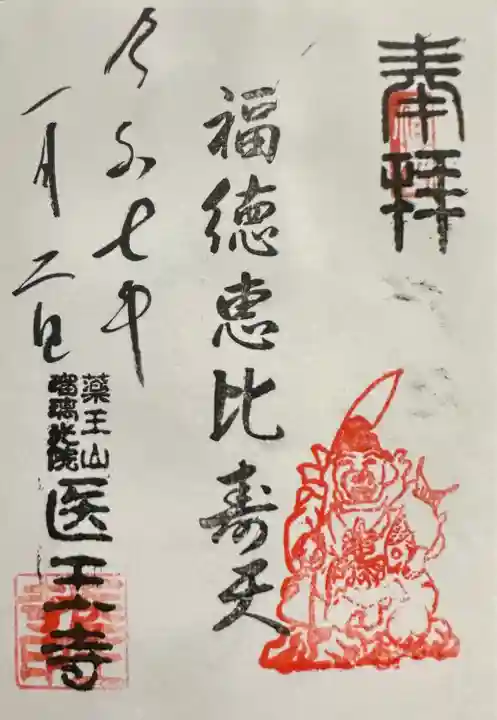 奉拝
福徳恵比寿天
令和七年
一月二日
薬王山
瑠璃光院
医王寺